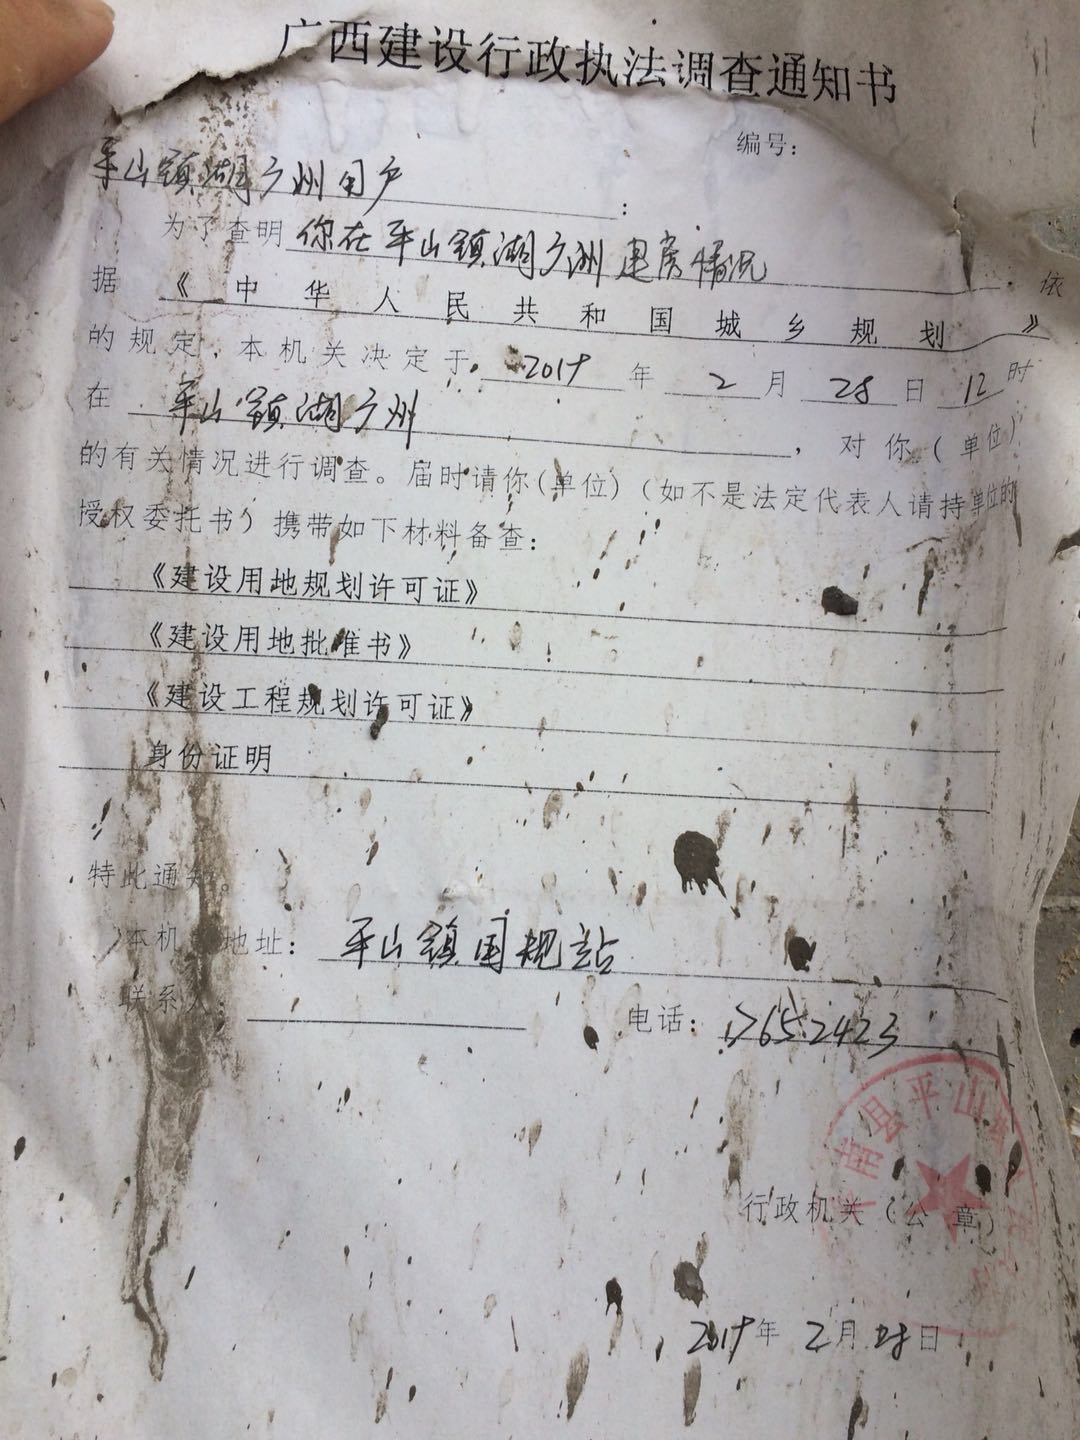 广西建设行政执法调查通知书
编号：
平山镇湖广州用户：
为了查明你在平山镇湖广洲建房情况 . 依
据《中华人民共和国城乡规划》
的规定，本机关决定于 2019 年 2 月 28 日 12 时
在 平山镇湖广州，对你（单位）
的有关情况进行调查。届时请你(单位)（如不是法定代表人请持单位的
授权委托书）携带如下材料备查：
《建设用地规划许可证》
《建设用地批准书》
《建设工程规划许可证》
身份证明
特此通知。
本机 地址：平山镇国规站
联系人： 电话：7652423
南县平山
行政机关（公章）
2019年 2月 28日